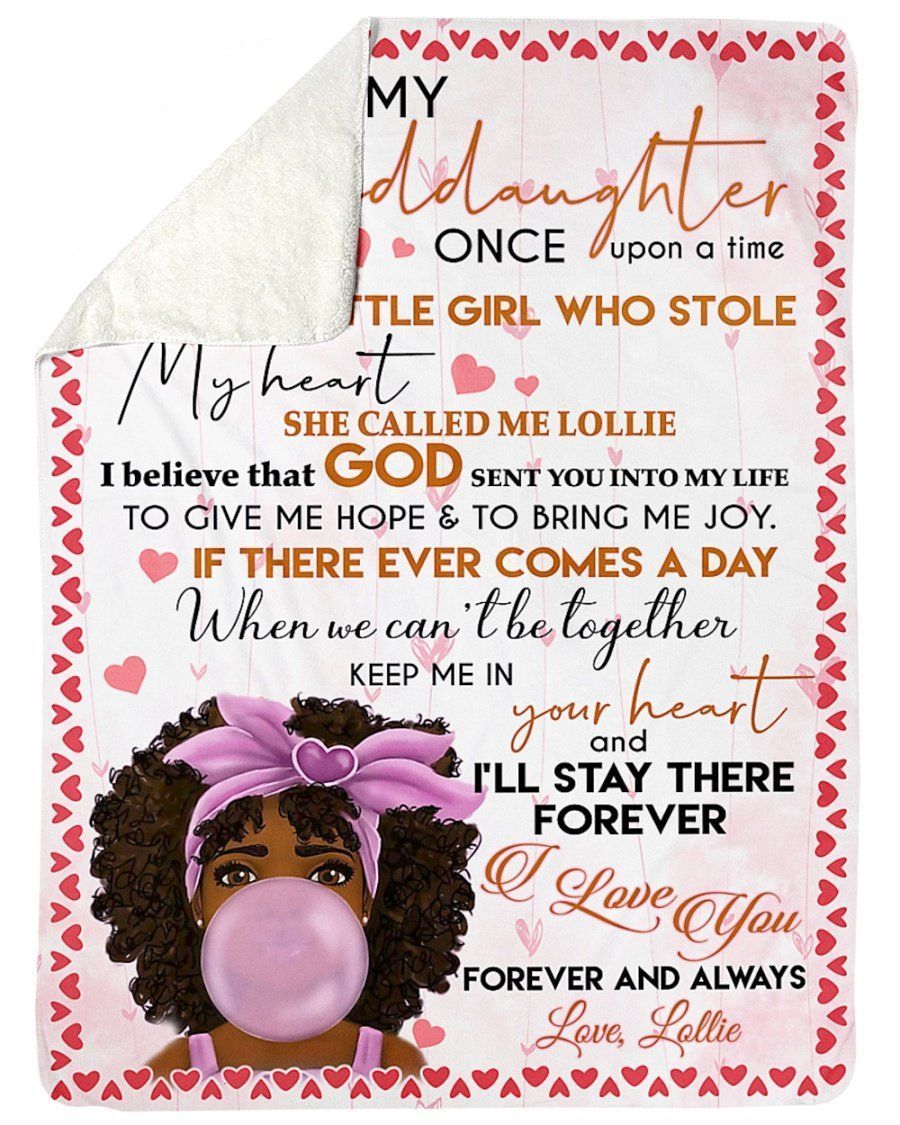 MY
ddaughter
ONCE upon a time
TTLE GIRL WHO STOLE
My heart
SHE CALLED ME LOLLIE
I believe that GOD SENT YOU INTO MY LIFE
TO GIVE ME HOPE & TO BRING ME JOY.
IF THERE EVER COMES A DAY
When we can't be together
KEEP ME IN
your heart
and
I'LL STAY THERE
FOREVER
I Love You
FOREVER AND ALWAYS
Love, Lollie